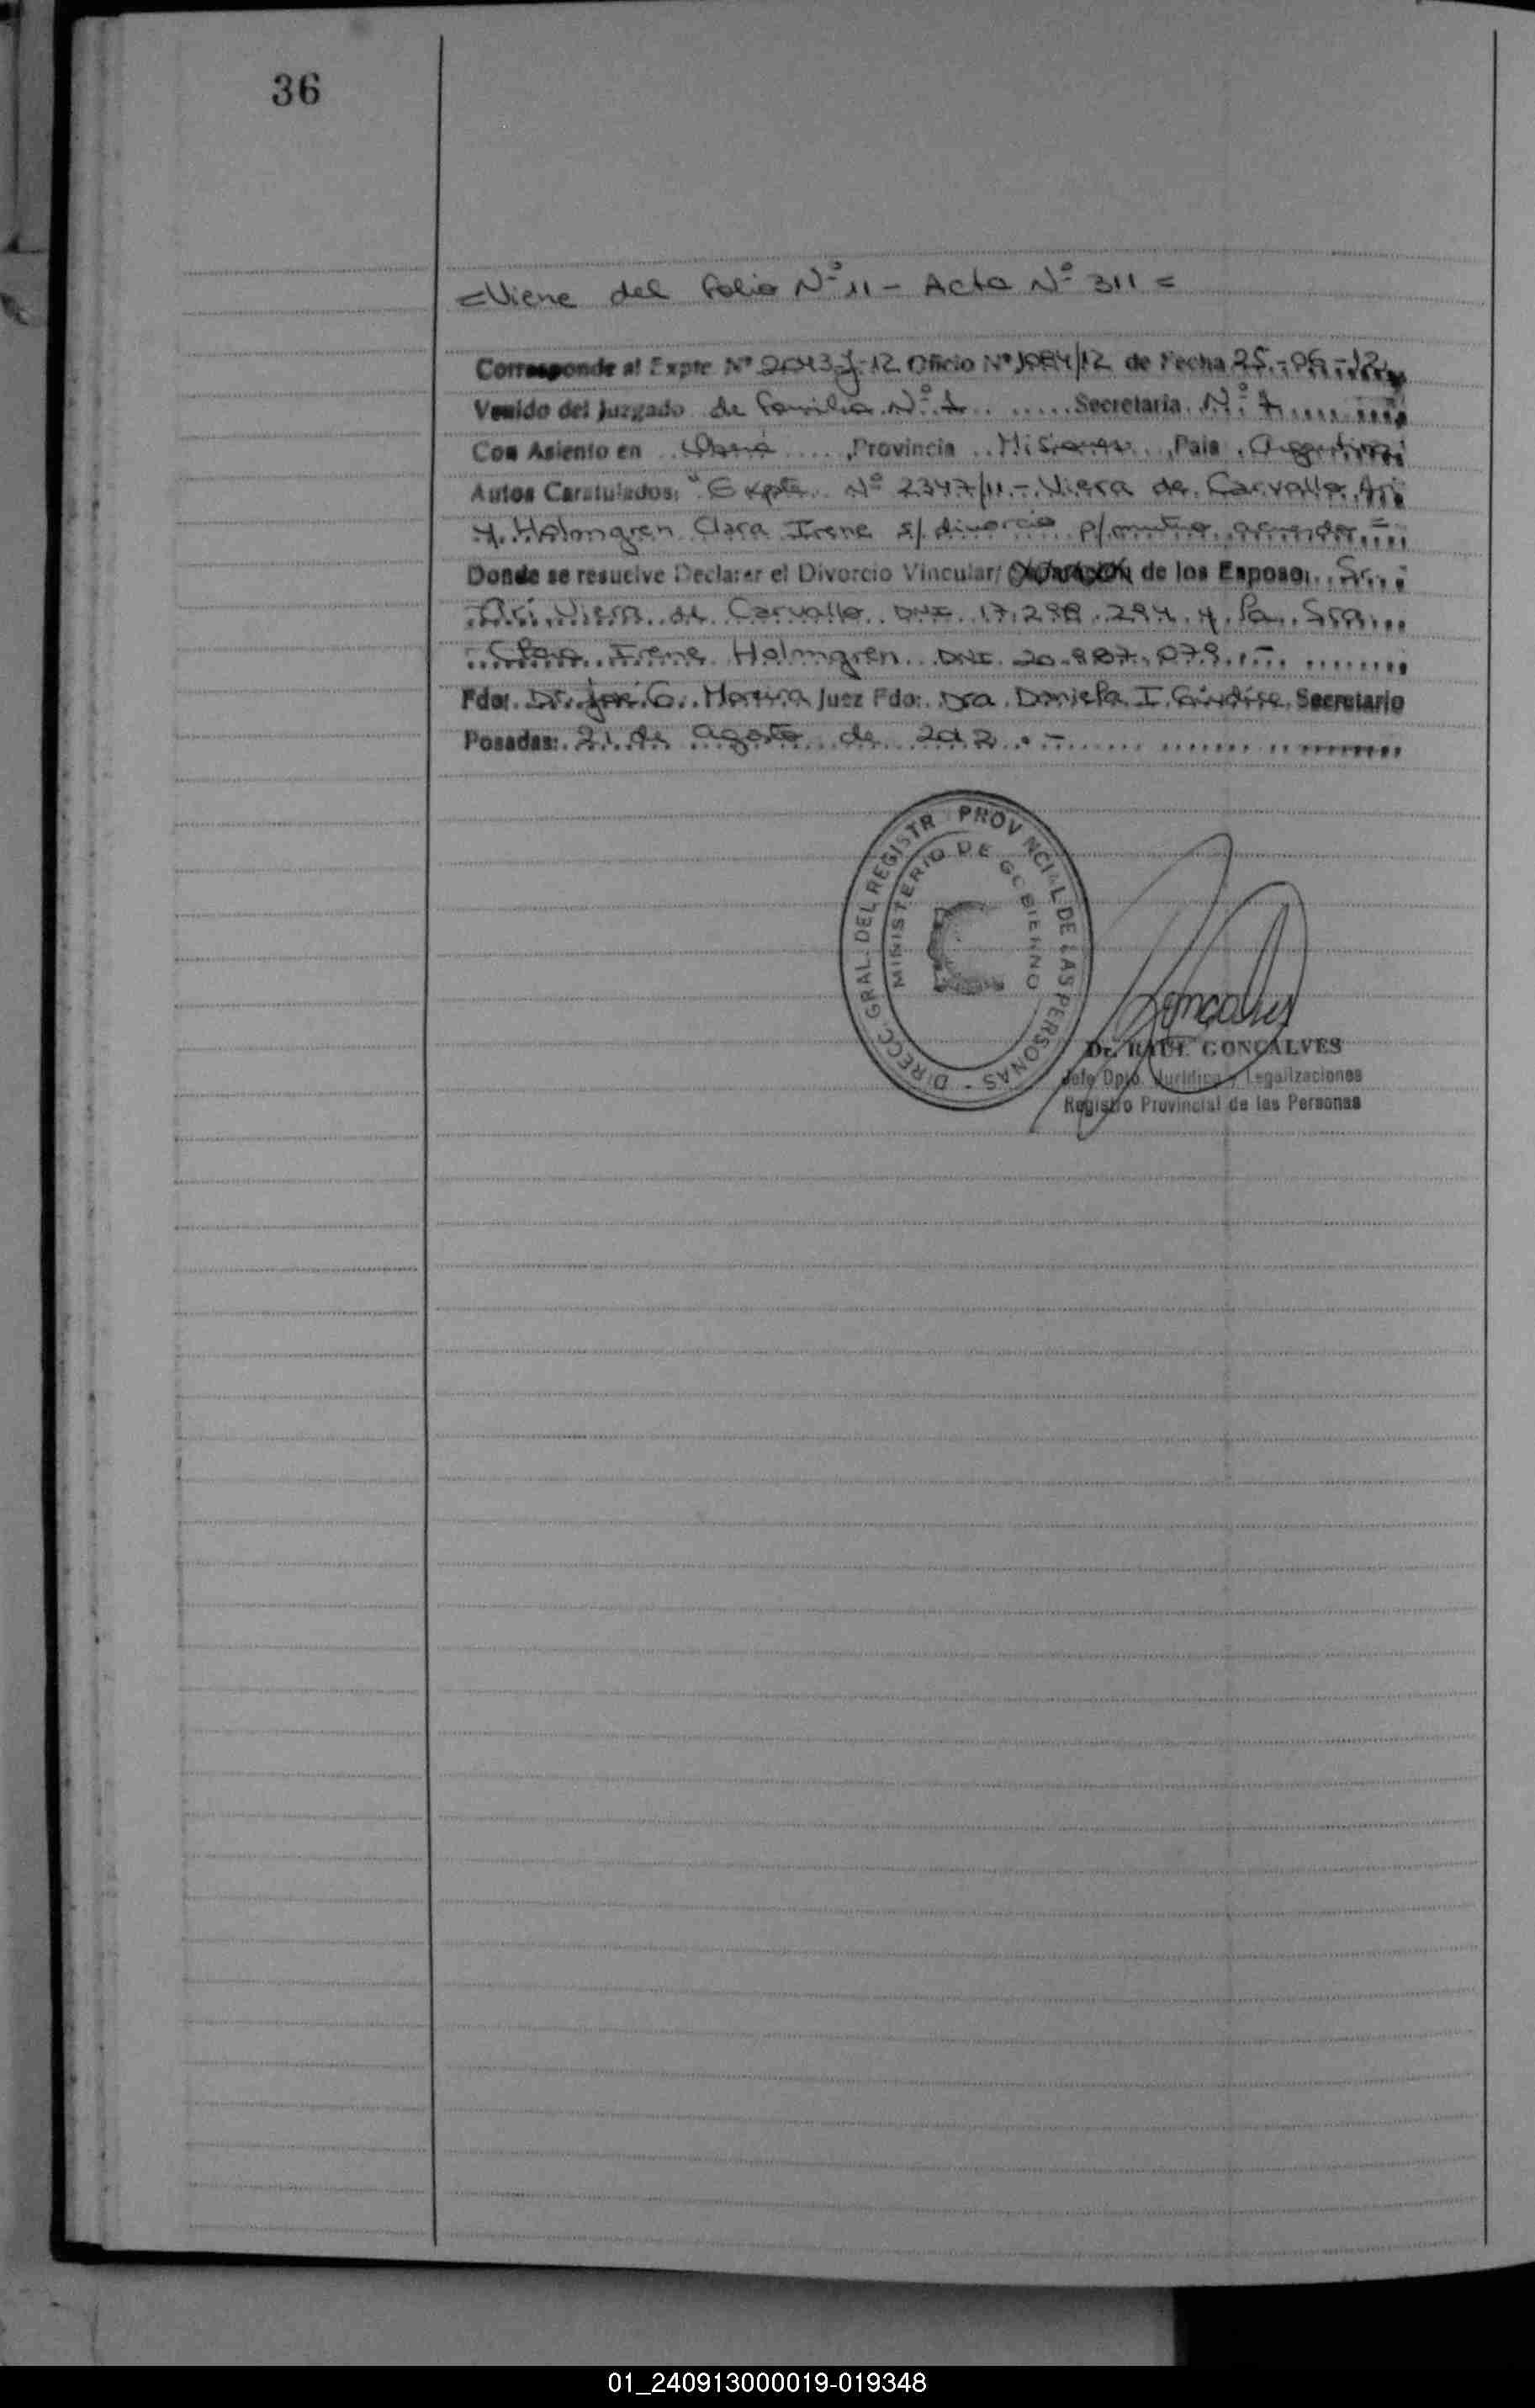 36
=Viene del folio Nº 11 - Acta Nº 311 =
Corresponde al Expte Nº 2043-J-12 Oficio Nº 1084/12 de Fecha 25-06-12
Venido del Juzgado de Familia Nº 1 Secretaria Nº 1
Con Asiento en Oberá, Provincia Misiones, Pais Argentina
Autos Caratulados: "Expte. Nº 2347/11.- Viera de Carvallo Ari
y Holmgren Clara Irene s/ divorcio p/ mutuo acuerdo =
Donde se resuelve Declarar el Divorcio Vincular/ de los Esposo: Sr.
Ari Viera de Carvallo DNI 17.298.294 y la Sra.
Clara Irene Holmgren DNI. 20.887.079.-
Fdo: Dr. José G. Moreira Juez Fdo: Dra. Daniela I. Giudice Secretario
Posadas: 21 de agosto de 2012.-
DIRECC. GRAL. DEL REGISTR PROVINCIAL DE LAS PERSONAS -
MINISTERIO DE GOBIERNO
Dr. RAUL GONÇALVES
Jefe Dpto. Jurídico y Legalizaciones
Registro Provincial de las Personas
01_240913000019-019348